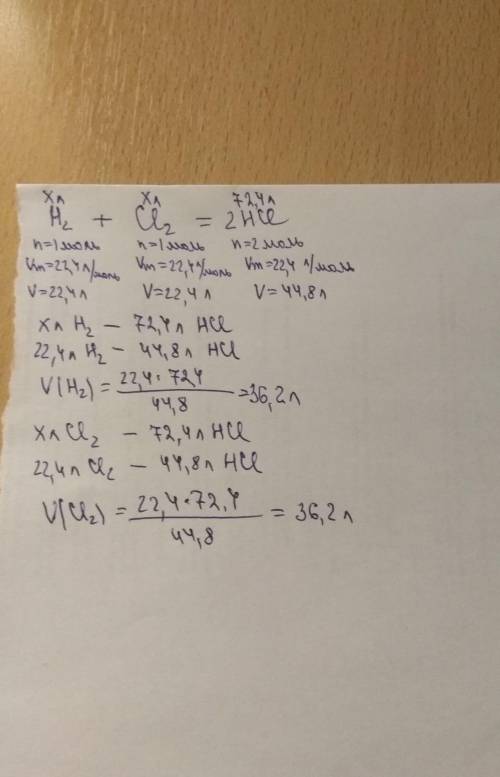 xл xл 72,4л
H₂ + Cl₂ = 2HCl
n=1моль n=1моль n=2моль
Vm=22,4л/моль Vm=22,4л/моль Vm=22,4 л/моль
V=22,4л V=22,4л V=44,8л
xл H₂ – 72,4л HCl
22,4л H₂ – 44,8л HCl
V(H₂) = 22,4·72,4 / 44,8 = 36,2л
xл Cl₂ – 72,4л HCl
22,4л Cl₂ – 44,8л HCl
V(Cl₂) = 22,4·72,4 / 44,8 = 36,2л